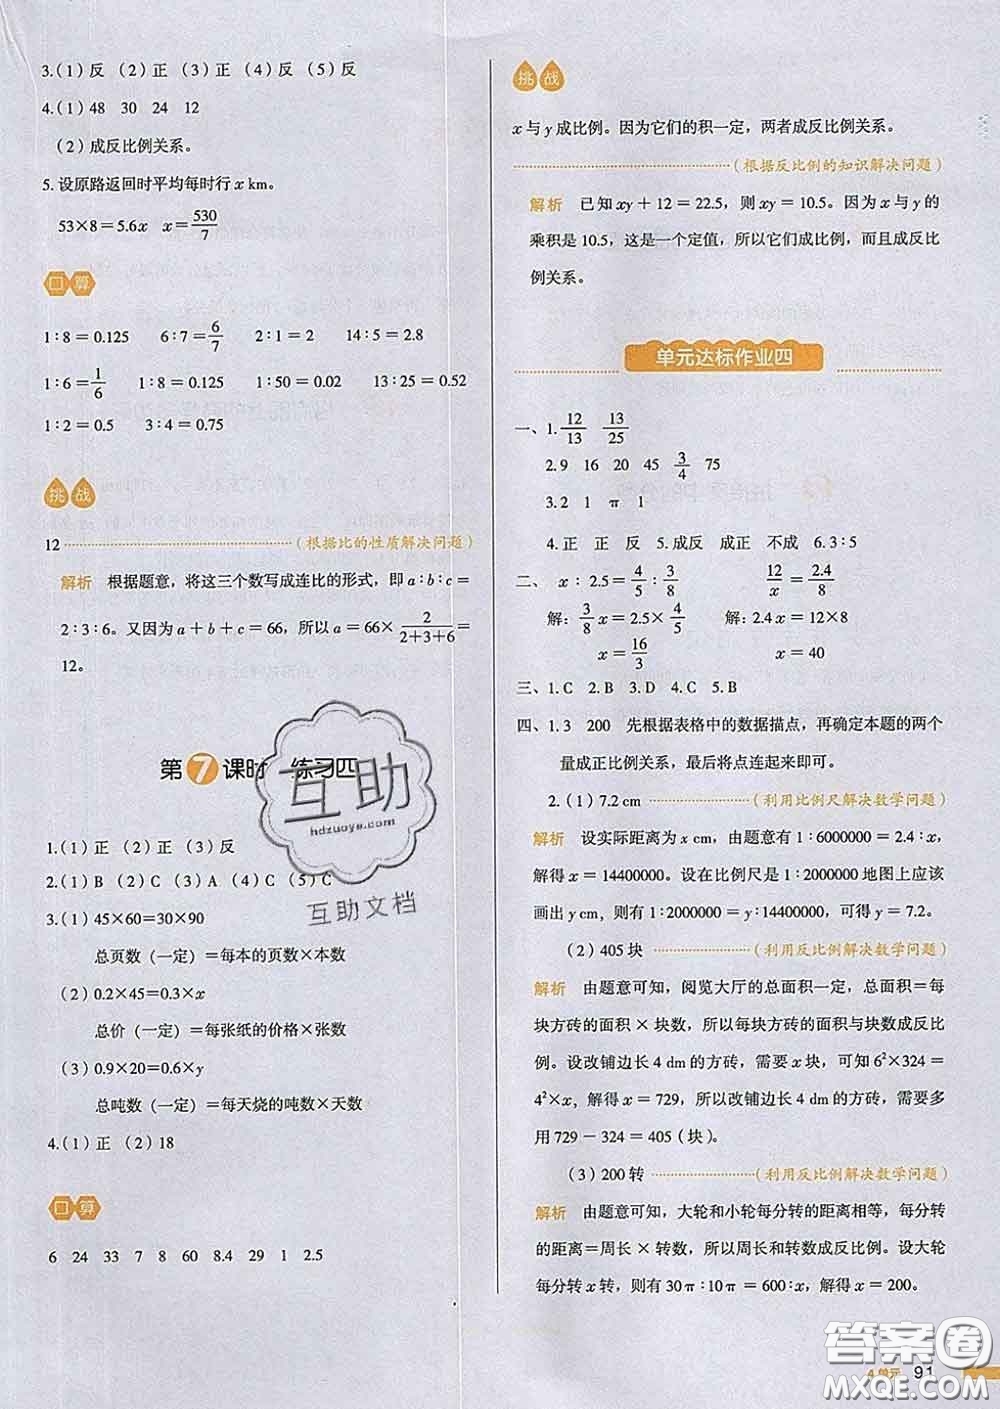 3.(1)反 (2)正 (3)正 (4)反 (5)反
4.(1)48 30 24 12
(2)成反比例关系。
5.设原路返回时平均每时行x km。
53×8=5.6x x=530/7
口算
1∶8=0.125 6∶7=6/7 2∶1=2 14∶5=2.8
1∶6=1/6 1∶8=0.125 1∶50=0.02 13∶25=0.52
1∶2=0.5 3∶4=0.75
挑战
12 (根据比的性质解决问题)
解析 根据题意，将这三个数写成连比的形式，即a∶b∶c=
2∶3∶6。又因为a+b+c=66，所以a=66×2/(2+3+6)=
12。
第7课时 练习四
1.(1)正 (2)正 (3)反
2.(1)B (2)C (3)A (4)C (5)C
3.(1)45×60=30×90
总页数(一定)=每本的页数×本数
(2)0.2×45=0.3×x
总价(一定)=每张纸的价格×张数
(3)0.9×20=0.6×y
总吨数(一定)=每天烧的吨数×天数
4.(1)正 (2)18
口算
6 24 33 7 8 60 8.4 29 1 2.5
挑战
x与y成比例。因为它们的积一定，两者成反比例关系。
(根据反比例的知识解决问题)
解析 已知xy+12=22.5，则xy=10.5。因为x与y的
乘积是10.5，这是一个定值，所以它们成比例，而且成反比
例关系。
单元达标作业四
一、1.12/13 13/25
2.9 16 20 45 3/4 75
3.2 1 π 1
4.正 正 反 5.成反 成正 不成 6.3∶5
二、x∶2.5=4/5∶3/8 12/x=2.4/8
解：3/8x=2.5×4/5 解：2.4x=12×8
x=16/3 x=40
三、1.C 2.B 3.D 4.C 5.B
四、1.3 200 先根据表格中的数据描点，再确定本题的两个
量成正比例关系，最后将点连起来即可。
2.(1)7.2cm (利用比例尺解决数学问题)
解析 设实际距离为x cm，由题意有1∶6000000=2.4∶x，
解得x=14400000。设在比例尺是1∶2000000地图上应该
画出y cm，则有1∶2000000=y∶14400000，可得y=7.2。
(2)405块 (利用反比例解决数学问题)
解析 由题意可知，阅览大厅的总面积一定，总面积=每
块方砖的面积×块数，所以每块方砖的面积与块数成反比
例。设改铺边长4 dm的方砖，需要x块，可知6²×324=
4²×x，解得x=729，所以改铺边长4 dm的方砖，需要多
用729-324=405(块)。
(3)200转 (利用反比例解决数学问题)
解析 由题意可知，大轮和小轮每分转的距离相等，每分转
的距离=周长×转数，所以周长和转数成反比例。设大轮
每分转x转，则有30π∶10π=600∶x，解得x=200。
4单元 91
互助
hdzuoye.com
互助文档
答案圈
MXQE.COM